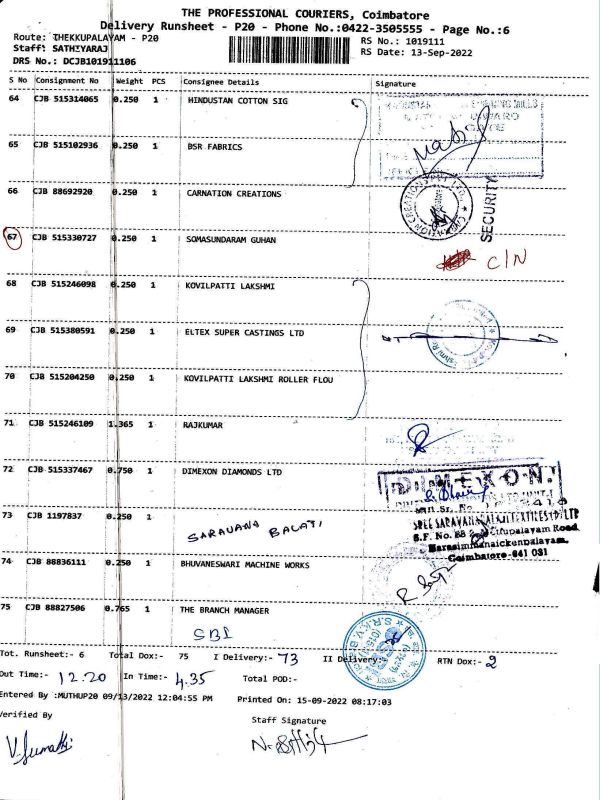 THE PROFESSIONAL COURIERS, Coimbatore
Delivery Runsheet - P20 - Phone No.:0422-3505555 - Page No.:6
Route: THEKKUPALAYAM - P20 RS No.: 1019111
Staff: SATHIYARAJ RS Date: 13-Sep-2022
DRS No.: DCJB101911106
S No Consignment No Weight PCS Consignee Details Signature
64 CJB 515314065 0.250 1 HINDUSTAN COTTON SIG
65 CJB 515102936 0.250 1 BSR FABRICS
66 CJB 88692920 0.250 1 CARNATION CREATIONS
SECURITY
67 CJB 515330727 0.250 1 SOMASUNDARAM GUHAN
C/N
68 CJB 515246098 0.250 1 KOVILPATTI LAKSHMI
69 CJB 515380591 0.250 1 ELTEX SUPER CASTINGS LTD
70 CJB 515204250 0.250 1 KOVILPATTI LAKSHMI ROLLER FLOU
71 CJB 515246109 1.365 1 RAJKUMAR
72 CJB 515337467 0.750 1 DIMEXON DIAMONDS LTD
DIMEXON
73 CJB 1197837 0.250 1 SARAVANA BALAJI
S.F. No. 88
Narasimmanaickenpalayam,
Coimbatore-641 031
74 CJB 88836111 0.250 1 BHUVANESWARI MACHINE WORKS
75 CJB 88827506 0.765 1 THE BRANCH MANAGER
SBI
Tot. Runsheet:- 6 Total Dox:- 75 I Delivery:- 73 II Delivery:- RTN Dox:- 2
Out Time:- 12.20 In Time:- 4.35 Total POD:-
Entered By :MUTHUP20 09/13/2022 12:04:55 PM Printed On: 15-09-2022 08:17:03
Verified By Staff Signature